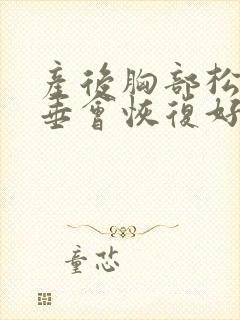 產後胸部松
垂會恢復好
童芯